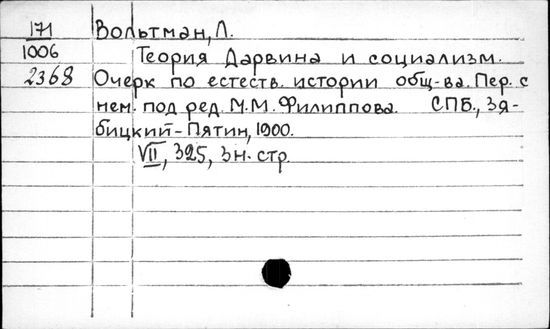 171 Вольтман, Л.
1006 Теория Дарвина и социализм.
2368 Очерк по естеств. истории общ-ва. Пер. с
нем. под ред. М.М. Филиппова. СПБ., Зя-
бицкий-Пятин, 1900.
VII, 325, 3 н. стр.